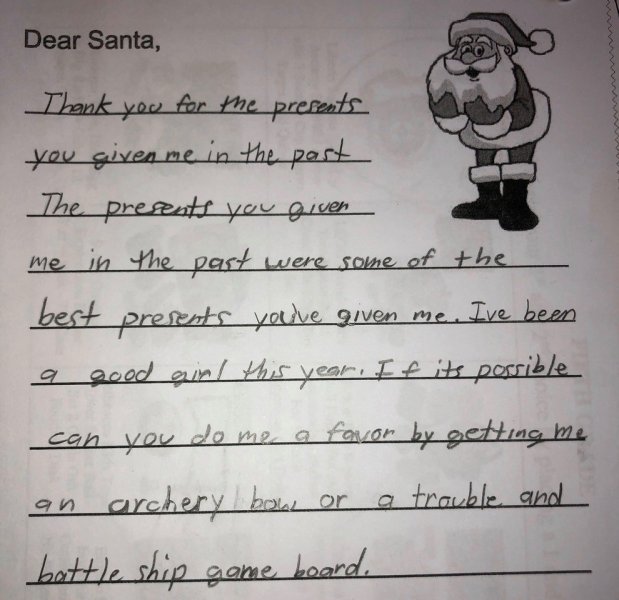 Dear Santa,
Thank you for the presents
you given me in the past
The presents you given
me in the past were some of the
best presents you've given me. Ive been
a good girl this year. If its possible
can you do me a favor by getting me
an archery bow or a trouble and
battle ship game board.